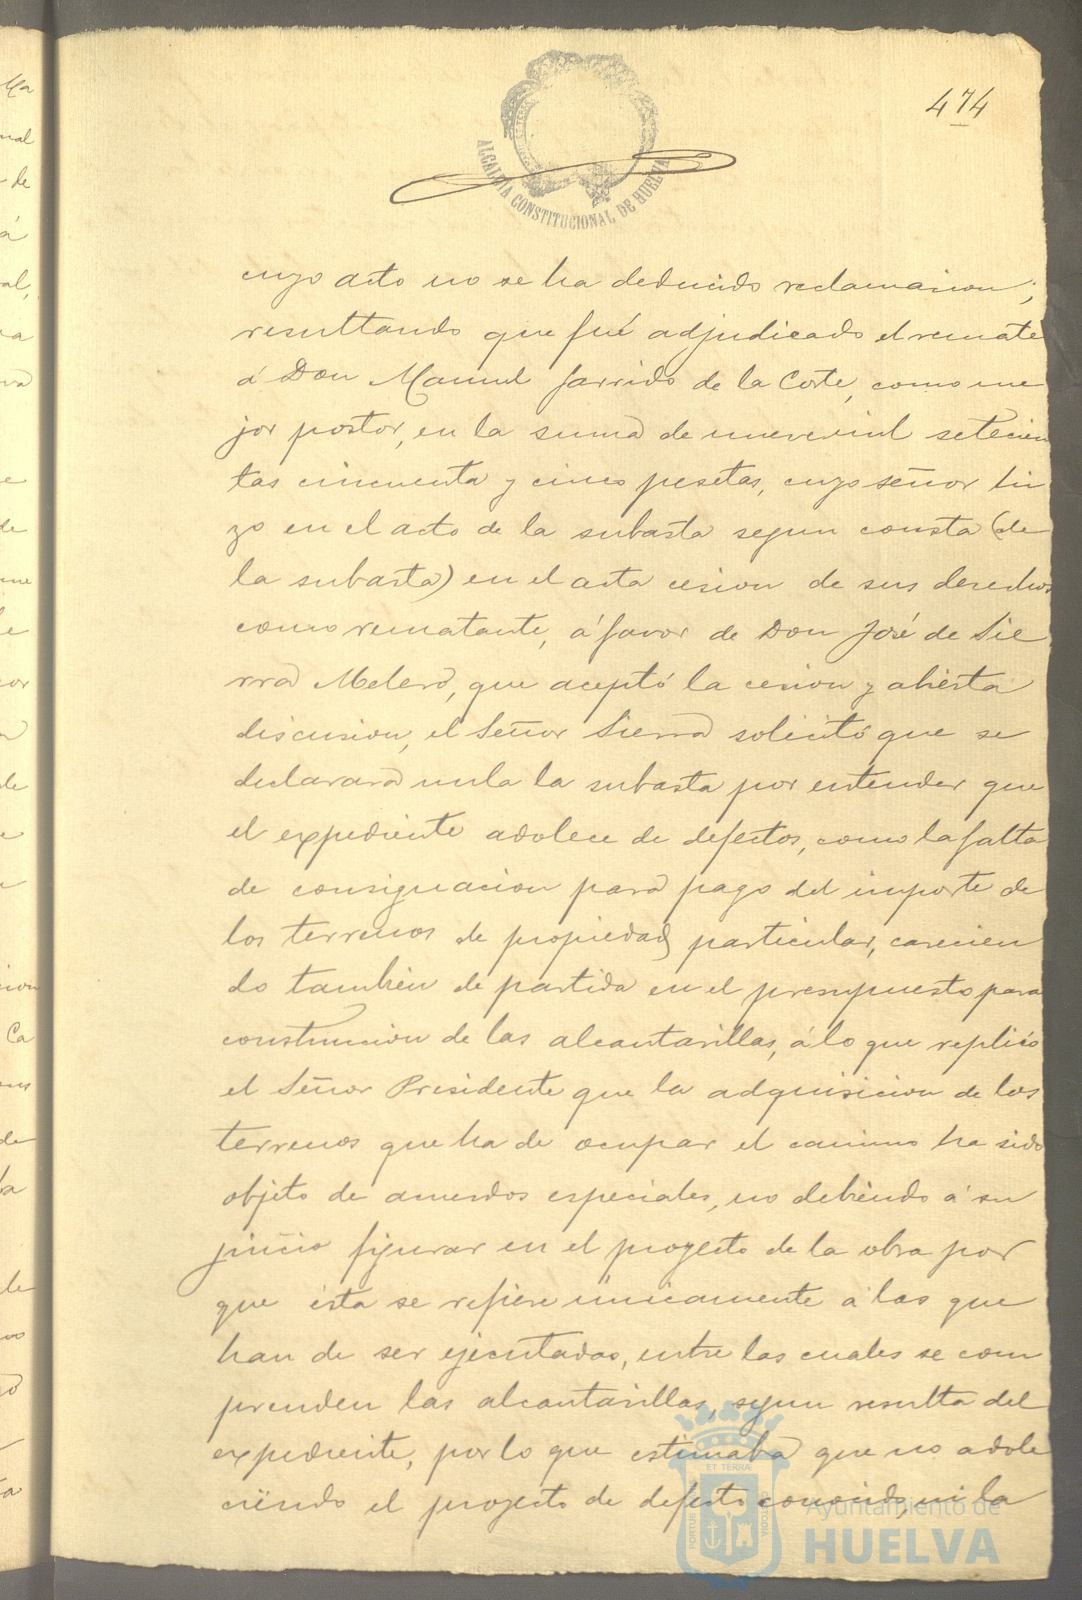 474
ALCALDÍA CONSTITUCIONAL DE HUELVA
cuyo acto no se ha deducido reclamacion;
resultando que fué adjudicado el remate
á Don Manuel Garrido de la Corte, como me
jor postor, en la suma de nueve mil setecien
tas cincuenta y cinco pesetas, cuyo señor hi
zo en el acto de la subasta segun consta (de
la subasta) en el acta cesion de sus derechos
como rematante, á favor de Don José de Sie
rra Melero, que aceptó la cesion y abierta
discusion, el Señor Sierra solicitó que se
declarara nula la subasta por entender que
el expediente adolece de defectos, como la falta
de consignacion para pago del importe de
los terrenos de propiedad particular, carecien
do tambien de partida en el presupuesto para
construccion de las alcantarillas, á lo que replicó
el Señor Presidente que la adquisicion de los
terrenos que ha de ocupar el camino ha sido
objeto de acuerdos especiales, no debiendo á su
juicio figurar en el proyecto de la obra por
que ésta se refiere únicamente á las que
han de ser ejecutadas, entre las cuales se com
prenden las alcantarillas, segun resulta del
expediente, por lo que estimaba que no adole
ciendo el proyecto de defecto conocido, ni la
ET TERRÆ
PORTUS
CUSTODIA
Ayuntamiento de
HUELVA